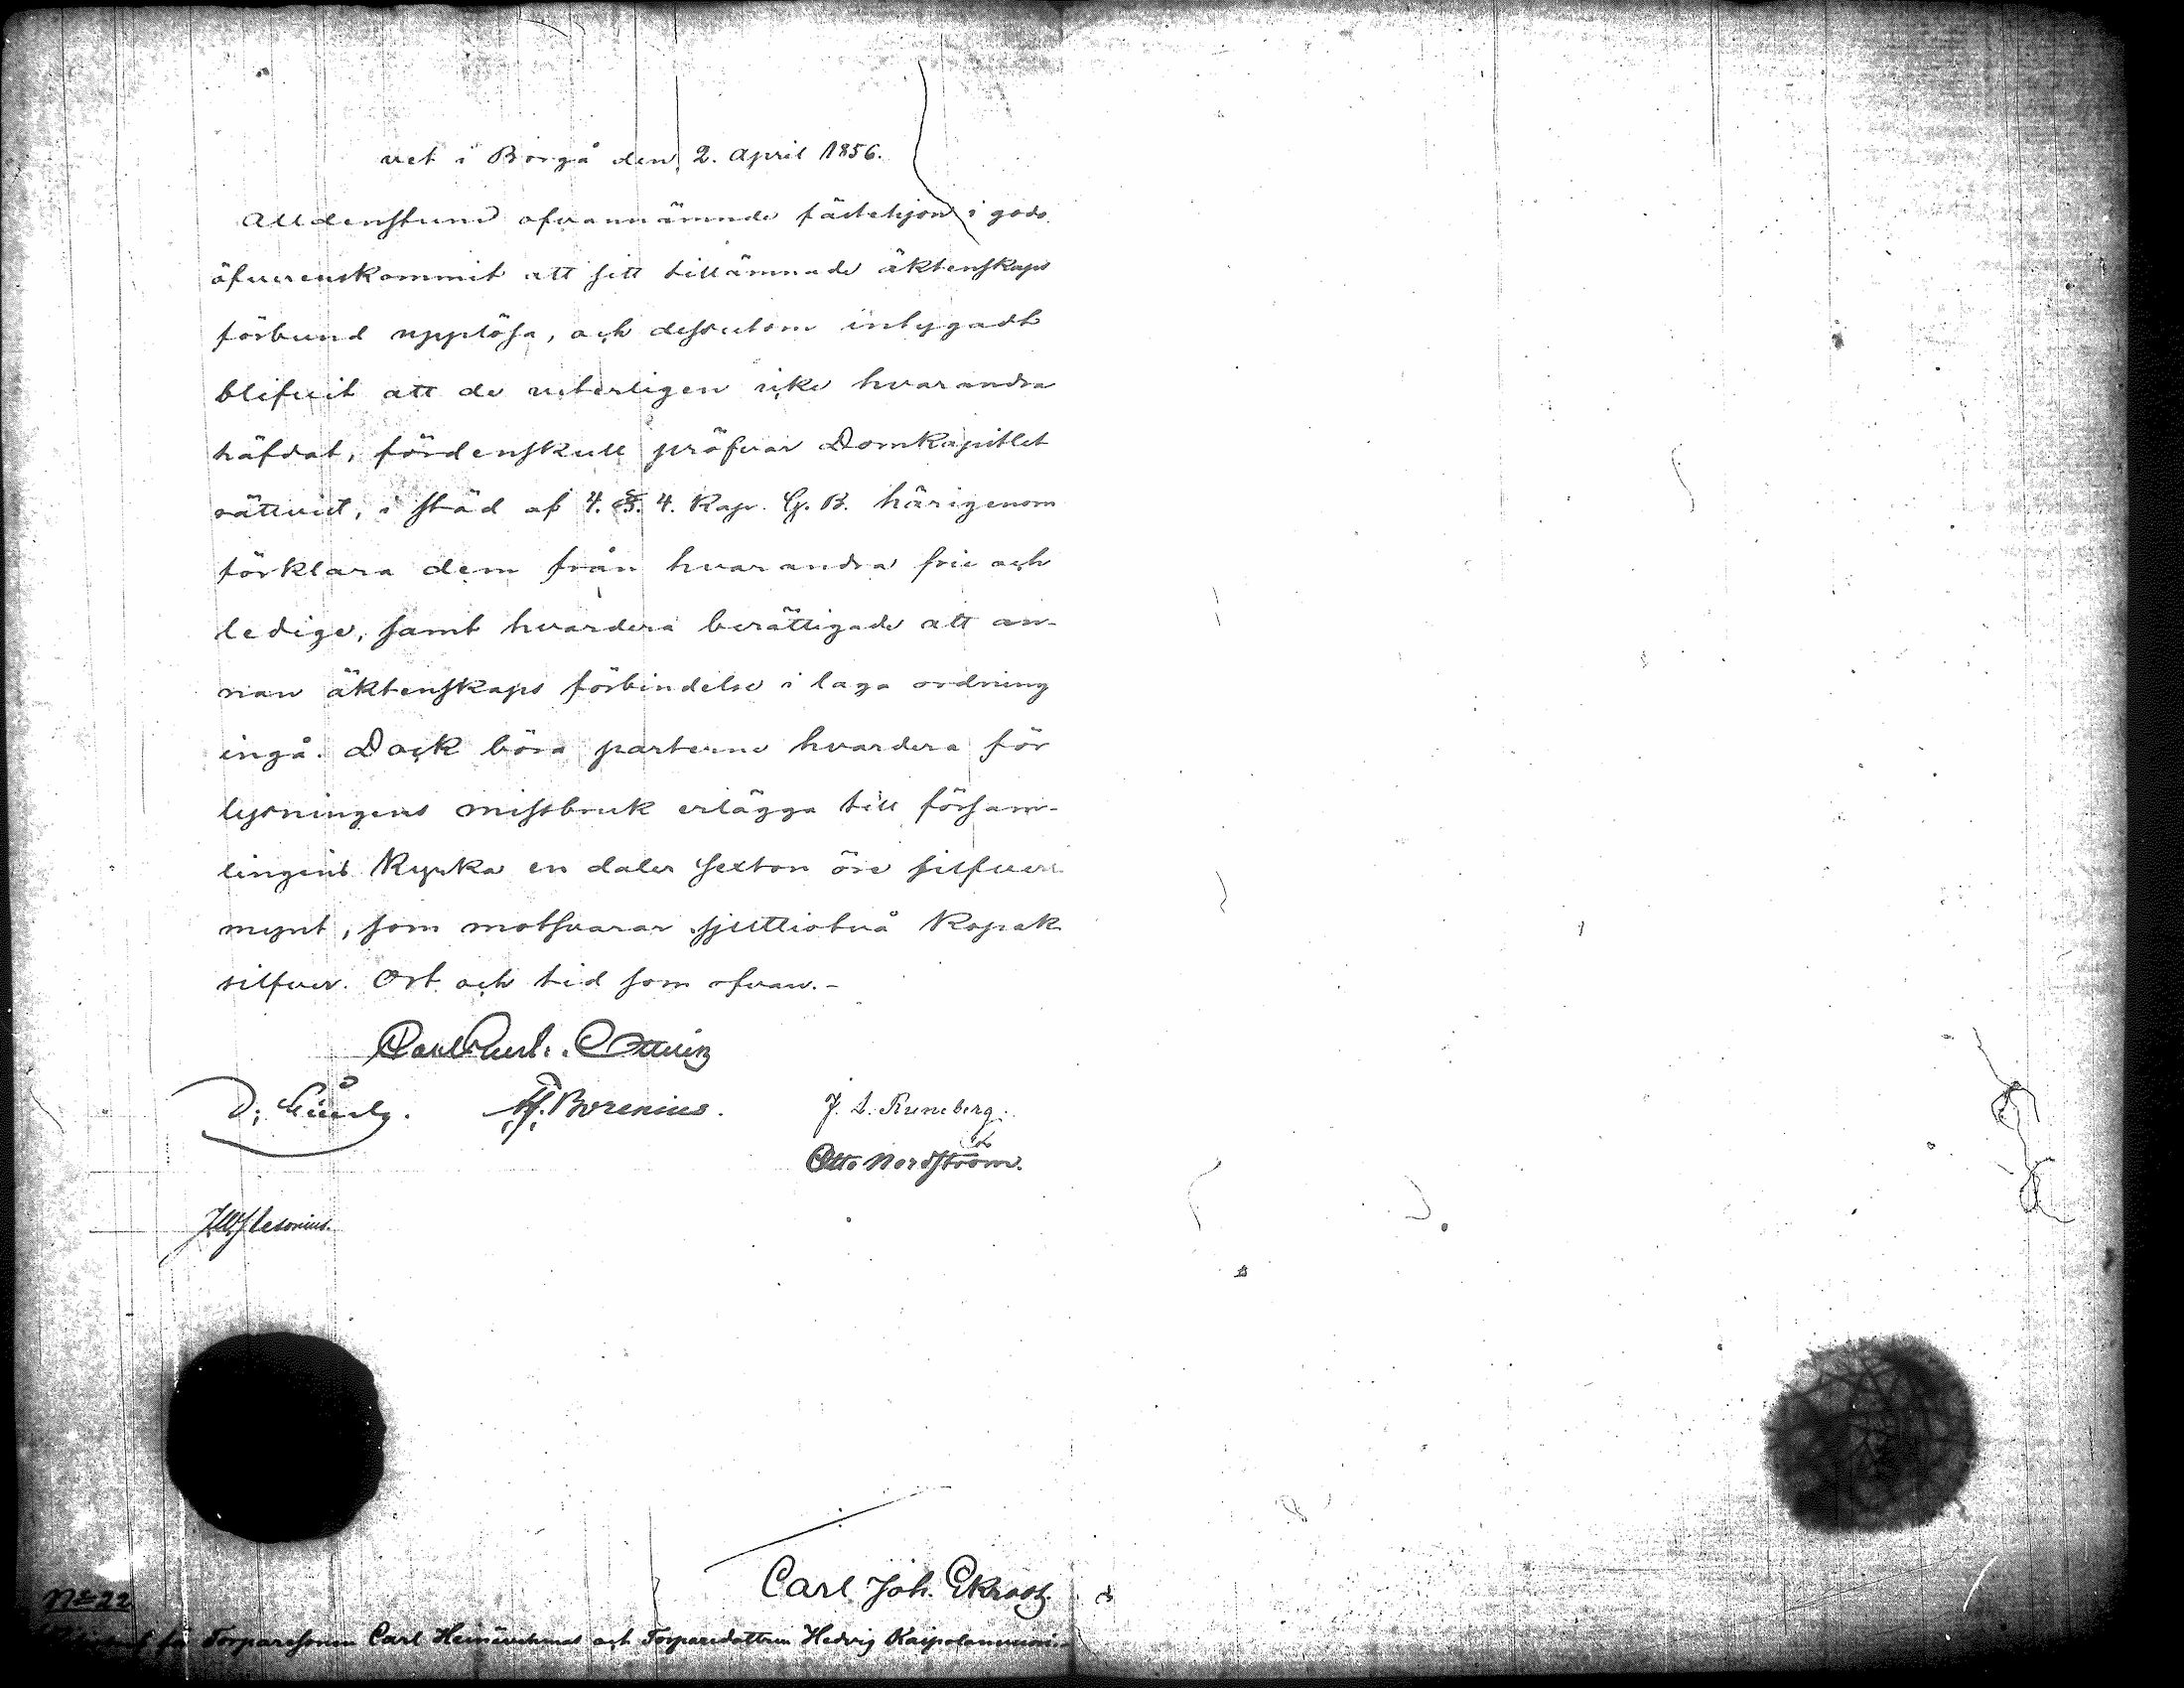 vet i Borgå den 2. April 1856.
Alldenstund ofvannämnde fästehjon i godo
öfverenskommit att sitt tillämnade äktenskaps
förbund upplösa, och dessutom intygadt
blifvit att de veterligen icke hvarandra
häfdat, fördenskull pröfvar Domkapitlet
rättvist, i stöd af 4. §. 4. Kap. G. B. härigenom
förklara dem från hvarandra frie och
ledige, samt hvardera berättigade att an-
nan äktenskaps förbindelse i laga ordning
ingå. Dock böra parterne hvardera för
lysningens missbruk erlägga till försam-
lingens Kyrka en daler sexton öre silfver
mynt, som motsvarar sjuttiotvå Kopek
silfver. Ort och tid som ofvan.-
Carl Gust. Ottelin
Borenius. J. L. Runeberg.
Otto Nordström.
Carl Joh. Ekroos
No 22
för Torparesonen Carl och Torparedottren Hedvig